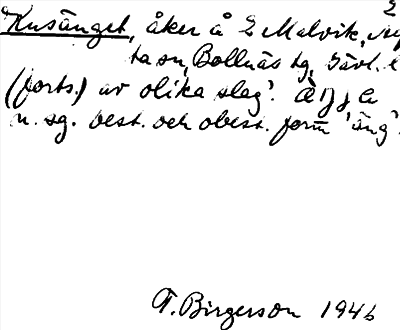 Knsänget, åker å E Malvik,
ta sn, Bollnäs tg, Gävl. l
(forts.) av olika slag'.
n. sg. best. och obest. form 'äng'.
T. Birgerson 1946